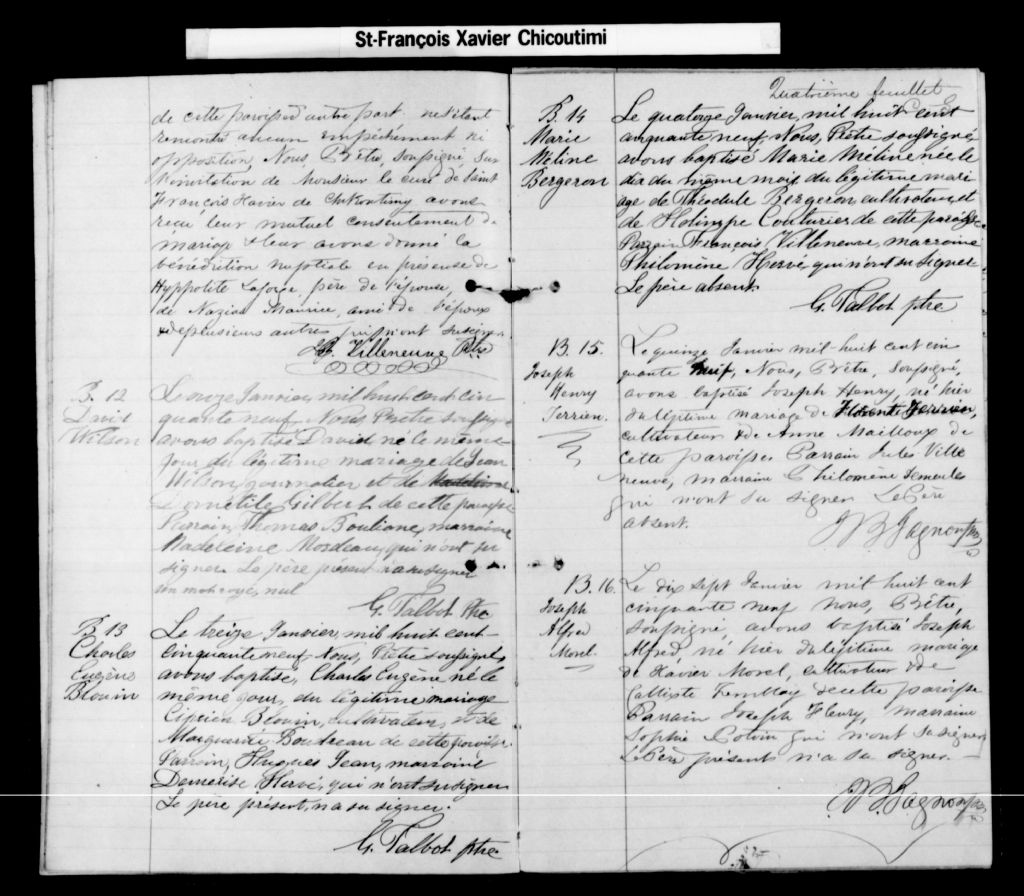 St-François Xavier Chicoutimi
de cette paroisse d'autre part. n'étant
rencontré aucun empêchement ni
opposition, Nous, Prêtre, soussigné, sur
l'invitation de Monsieur le curé de Saint
François Xavier de Chikoutimy avons
reçu leur mutuel consentement de
mariage & leur avons donné la
bénédiction nuptiale en présence de
Hyppolite Laforge, père de l'épouse,
de Nazias Maurice, ami de l'époux
& de plusieurs autres qui n'ont su signer
Villeneuve Ptre
B. 12
David
Wilson
Le onze Janvier, mil huit cent cin
quante neuf, Nous, Prêtre soussigné
avons baptisé David né le même
jour du légitime mariage de Jean
Wilson, journalier et de
Dométile Gilbert de cette paroisse
Parrain, Thomas Bouliane, marraine
Madeleine qui n'ont su
signer. Le père présent n'a su signer
un mot rayé, nul
G. Talbot Ptre
B 13
Charles
Eugène
Blouin
Le treize Janvier, mil huit cent-
cinquante neuf, Nous, Prêtre soussigné
avons baptisé, Charles Eugène né le
même jour, du légitime mariage
Ciprien Blouin, cultivateur, et de
Marguerite Boudreau de cette paroisse
Parrain, Hugues Jean, marraine
Demerise Hervé, qui n'ont su signer
Le père présent, n'a su signer.
G. Talbot ptre
Quatrième feuillet
B. 14
Marie
Méline
Bergeron
Le quatorze Janvier, mil huit cent
cinquante neuf, Nous, Prêtre soussigné
avons baptisé Marie Méline née le
dix du même mois du légitime mari
age de Théodule Bergeron cultivateur, et
de Couturier de cette paroisse
Parrain François Villeneuve, marraine
Philomène Hervé, qui n'ont su signer
Le père absent.
G. Talbot ptre
B. 15.
Joseph
Henry
Terrien.
Le quinze Janvier mil-huit cent cin
quante neuf, Nous, Prêtre, soussigné,
avons baptisé Joseph Henry, né hier
du légitime mariage de Terrien,
cultivateur & de Anne Mailloux de
cette paroisse. Parrain Jules Ville
neuve, marraine Philomène
qui n'ont su signer Le Père
absent.
B. 16.
Joseph
Alfred
Morel.
Le dix sept Janvier mil huit cent
cinquante neuf nous, Prêtre,
soussigné, avons baptisé Joseph
Alfred né hier du légitime mariage
de Xavier Morel, cultivateur & de
Calliste Tremblay de cette paroisse
Parrain Joseph Fleury, marraine
Sophie Potvin qui n'ont su signer
Le Père présents n'a su signer. —